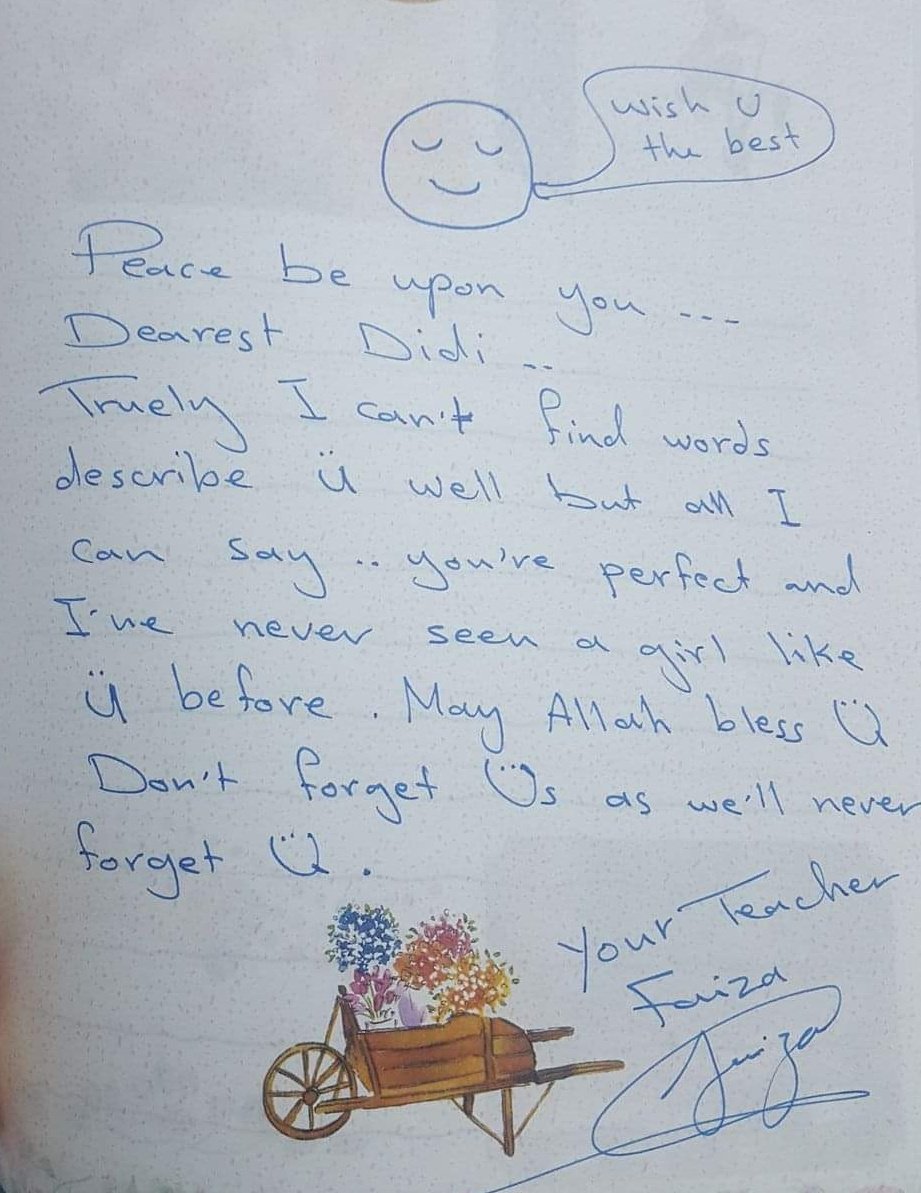 wish Ü
the best
Peace be upon you ---
Dearest Didi ..
Truely I can't find words
describe ü well but all I
can say .. you're perfect and
I've never seen a girl like
ü before. May Allah bless Ü
Don't forget Üs as we'll never
forget Ü.
Your Teacher
Faiza
Faiza